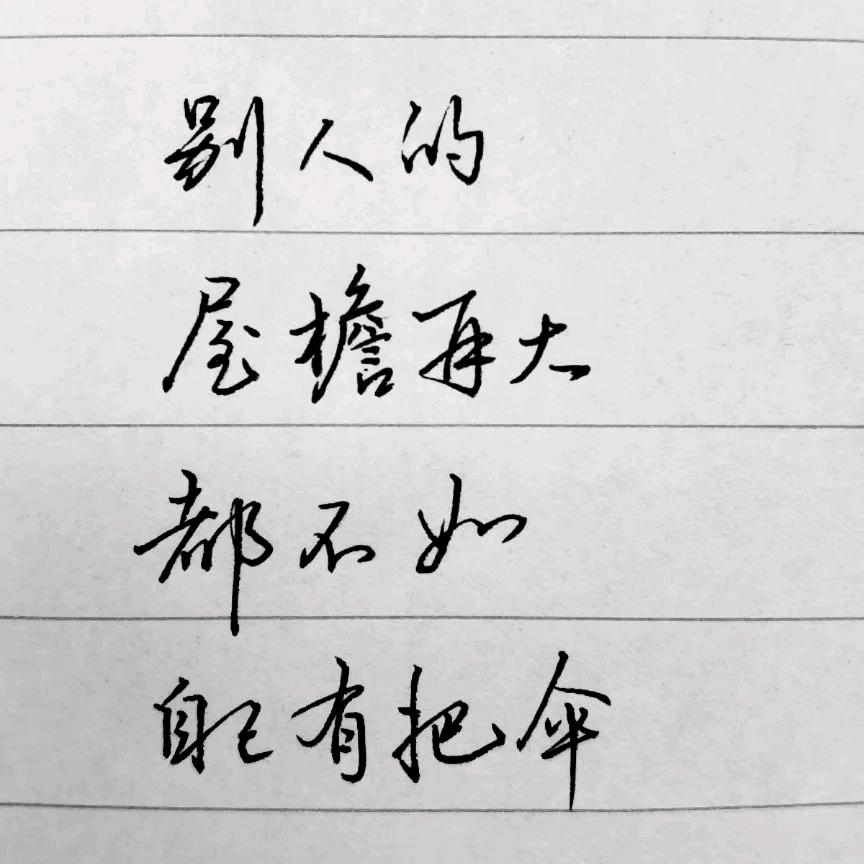 别人的
屋檐再大
都不如
自己有把伞